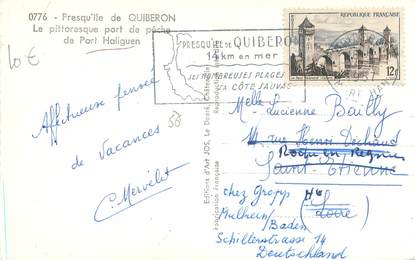 0776 - Presqu'île de QUIBERON
Le pittoresque port de pêche
de Port Haliguen
10€
PRESQU'ILE DE QUIBERON
14 km en mer
SES NOMBREUSES PLAGES
SA CÔTE SAUVAGE
RÉPUBLIQUE FRANÇAISE
12f
Affectueuse pensée
de vacances
C. Mervelet
56
Editions d'Art JOS, Le Doaré, Châteaulin
Fabrication Française
Reproduction
Melle Lucienne Bailly
rue Henri Déchaud
Saint-Etienne
Loire
chez Gropp
Mülheim/
Baden
Schillerstrasse 14
Deutschland